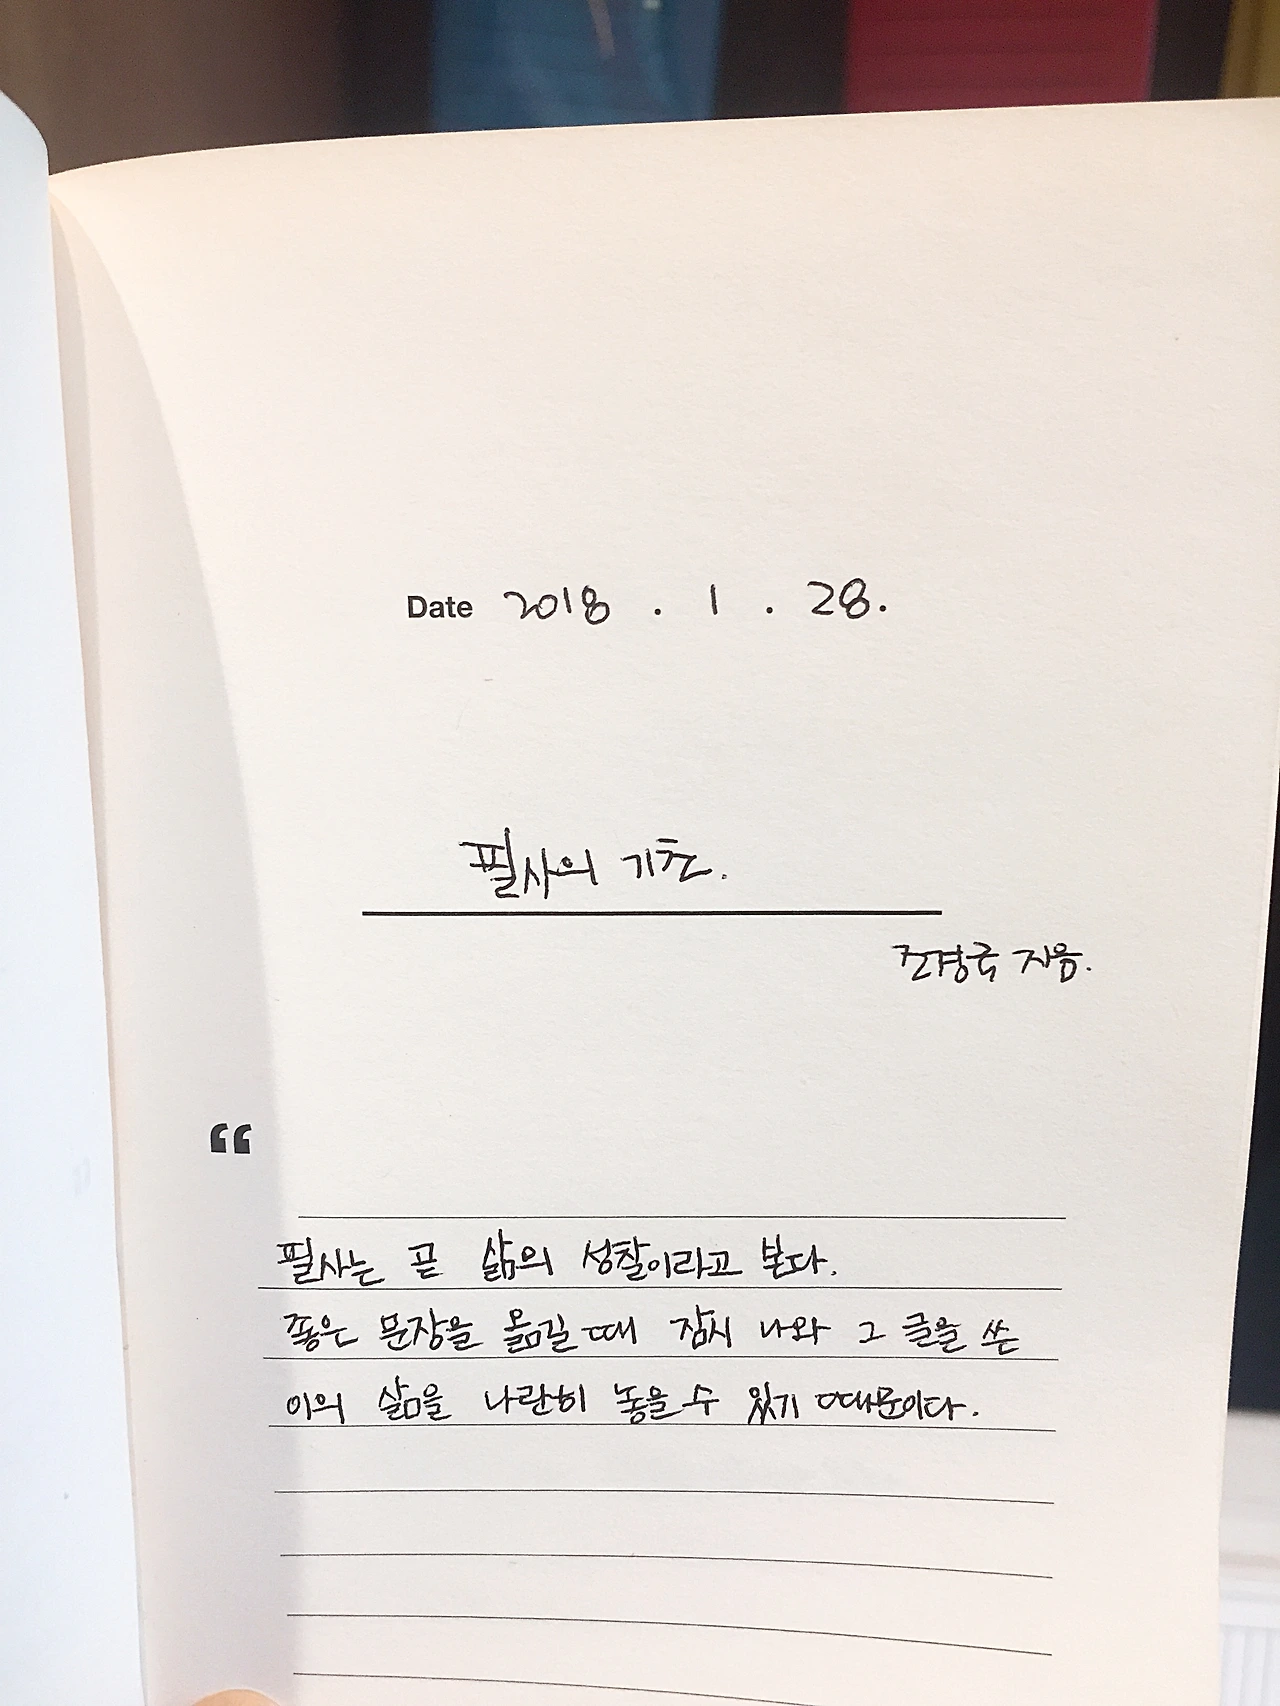 Date 2018 . 1 . 28.
필사의 기초.
조경국 지음.
“
필사는 곧 삶의 성찰이라고 본다.
좋은 문장을 옮길 때 잠시 나와 그 글을 쓴
이의 삶을 나란히 놓을 수 있기 때문이다.